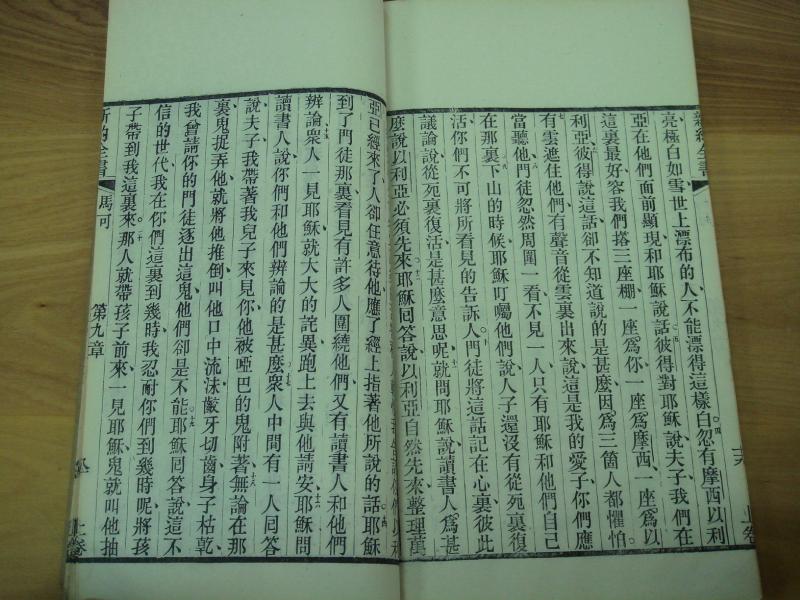 亮極白如雪世上漂布的人不能漂得這樣白忽有摩西以利
亞在他們面前顯現和耶穌說話彼得對耶穌說夫子我們在
這裏最好容我們搭三座棚一座爲你一座爲摩西一座爲以
利亞彼得說這話卻不知道說的是甚麼因爲三箇人都懼怕
有雲遮住他們有聲音從雲裏出來說這是我的愛子你們應
當聽他門徒忽然周圍一看不見一人只有耶穌和他們自己
在那裏下山的時候耶穌叮囑他們說人子還沒有從死裏復
活你們不可將所看見的告訴人門徒將這話記在心裏彼此
議論說從死裏復活是甚麼意思呢就問耶穌說讀書人爲甚
麼說以利亞必須先來耶穌回答說以利亞自然先來整理萬
亞已經來了人卻任意待他應了經上指著他所說的話耶穌
到了門徒那裏看見有許多人圍繞他們又有讀書人和他們
辨論衆人一見耶穌就大大的詫異跑上去與他請安耶穌問
讀書人說你們和他們辨論的是甚麼衆人中間有一人回答
說夫子我帶著我兒子來見你他被啞巴的鬼附著無論在那
裏鬼捉弄他就將他推倒叫他口中流沫齩牙切齒身子枯乾
我曾請你的門徒逐出這鬼他們卻是不能耶穌回答說這不
信的世代我在你們這裏到幾時我忍耐你們到幾時呢將孩
子帶到我這裏來那人就帶孩子前來一見耶穌鬼就叫他抽
新約全書 馬可 第九章 上卷